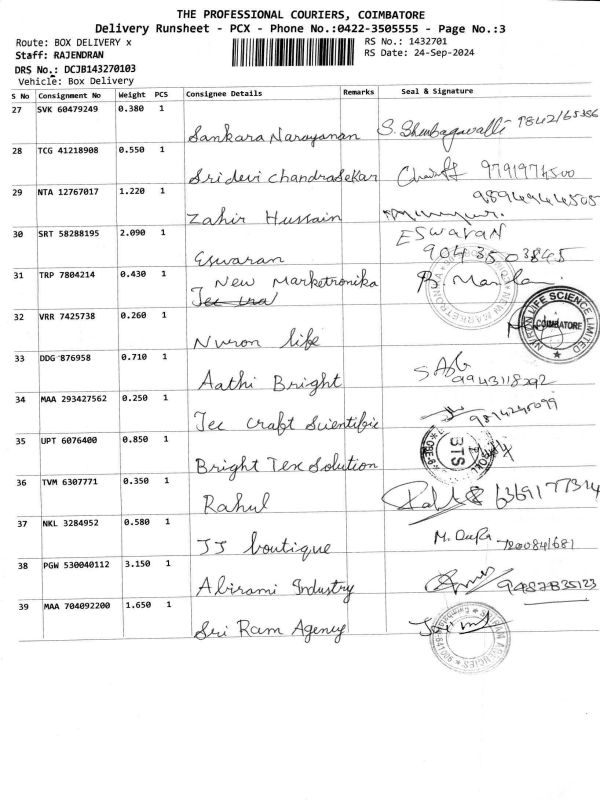 THE PROFESSIONAL COURIERS, COIMBATORE
Delivery Runsheet - PCX - Phone No.:0422-3505555 - Page No.:3
Route: BOX DELIVERY x RS No.: 1432701
Staff: RAJENDRAN RS Date: 24-Sep-2024
DRS No.: DCJB143270103
Vehicle: Box Delivery
S No Consignment No Weight PCS Consignee Details Remarks Seal & Signature
27 SVK 60479249 0.380 1
Sankara Narayanan S. Shenbagavalli
28 TCG 41218908 0.550 1
Sridevi chandrasekar 9791974500
29 NTA 12767017 1.220 1 9894944505
Zahir Hussain
30 SRT 58288195 2.090 1 ESwaran
Eswaran 9043503845
31 TRP 7804214 0.430 1 New Marketronika
Tec tra
32 VRR 7425738 0.260 1 NYRON LIFE SCIENCE LIMITED
COIMBATORE
Nuron life
33 DDG 876958 0.710 1
Aathi Bright 9943118292
34 MAA 293427562 0.250 1
Tec craft Scientific
35 UPT 6076400 0.850 1 BTS
Bright Tex Solution
36 TVM 6307771 0.350 1
Rahul 6369177314
37 NKL 3284952 0.580 1
JJ boutique
38 PGW 530040112 3.150 1
Abirami Industry 9487835123
39 MAA 704092200 1.650 1
Sri Ram Agency